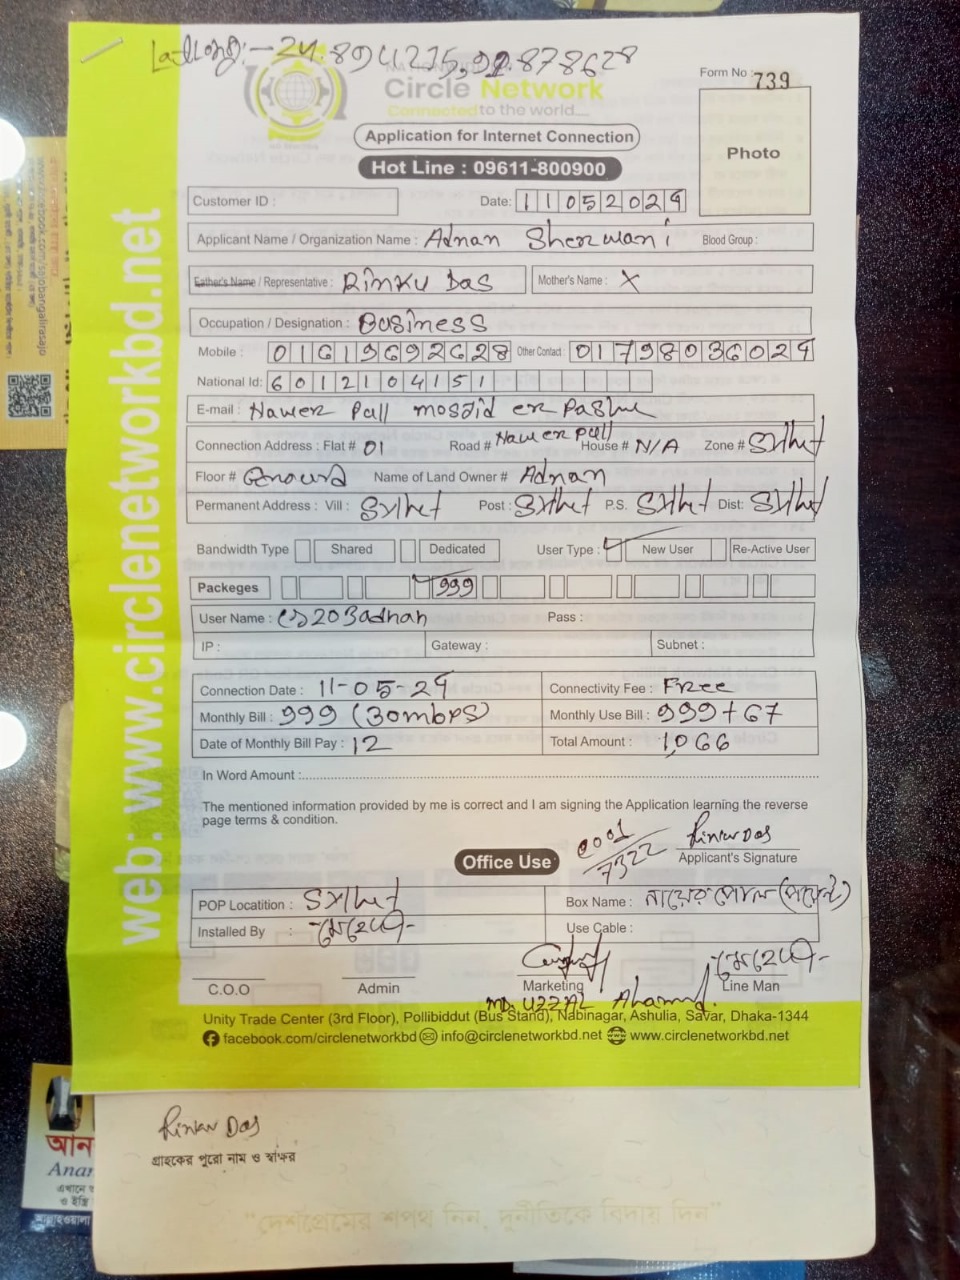 LatLong:- 24.894275,91.878628
Circle Network
Connected to the world...
Form No : 739
Application for Internet Connection
Photo
Hot Line : 09611-800900
Customer ID :
Date: 11052024
Applicant Name / Organization Name : Adnan Sherwani
Blood Group :
Father's Name / Representative : Rinku Das
Mother's Name : X
Occupation / Designation : Business
Mobile : 01619692628 Other Contact : 01798036024
National Id: 6012104151
E-mail : Nawer Pull mosjid er Pashe
Connection Address : Flat # 01 Road # Nawer pull House # N/A Zone # Sylhet
Floor # Ground Name of Land Owner # Adnan
Permanent Address : Vill : Sylhet Post : Sylhet P.S. Sylhet Dist: Sylhet
Bandwidth Type Shared Dedicated User Type : ✓ New User Re-Active User
Packeges ✓ 999
User Name : cs203adnan Pass :
IP : Gateway : Subnet :
Connection Date : 11-05-24 Connectivity Fee : Free
Monthly Bill : 999 (30mbps) Monthly Use Bill : 999+67
Date of Monthly Bill Pay : 12 Total Amount : 1,066
In Word Amount :
The mentioned information provided by me is correct and I am signing the Application learning the reverse
page terms & condition.
Rinku Das
Applicant's Signature
7322
Office Use
POP Locatition : Sylhet
Box Name : নায়ের পোল (পয়েন্ট)
Installed By : মেহেদী
Use Cable :
মেহেদী
C.O.O Admin Marketing Line Man
MD. UZZAL Ahamed.
Unity Trade Center (3rd Floor), Pollibiddut (Bus Stand), Nabinagar, Ashulia, Savar, Dhaka-1344
facebook.com/circlenetworkbd info@circlenetworkbd.net www.circlenetworkbd.net
web: www.circlenetworkbd.net
Rinku Das
গ্রাহকের পুরো নাম ও স্বাক্ষর
"দেশপ্রেমের শপথ নিন, দুর্নীতিকে বিদায় দিন"
আন
Anan